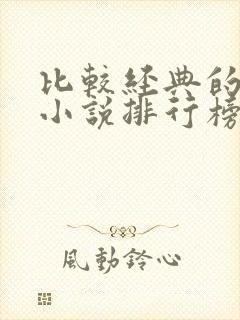 比較経典的
小説排行榜
風動鈴心